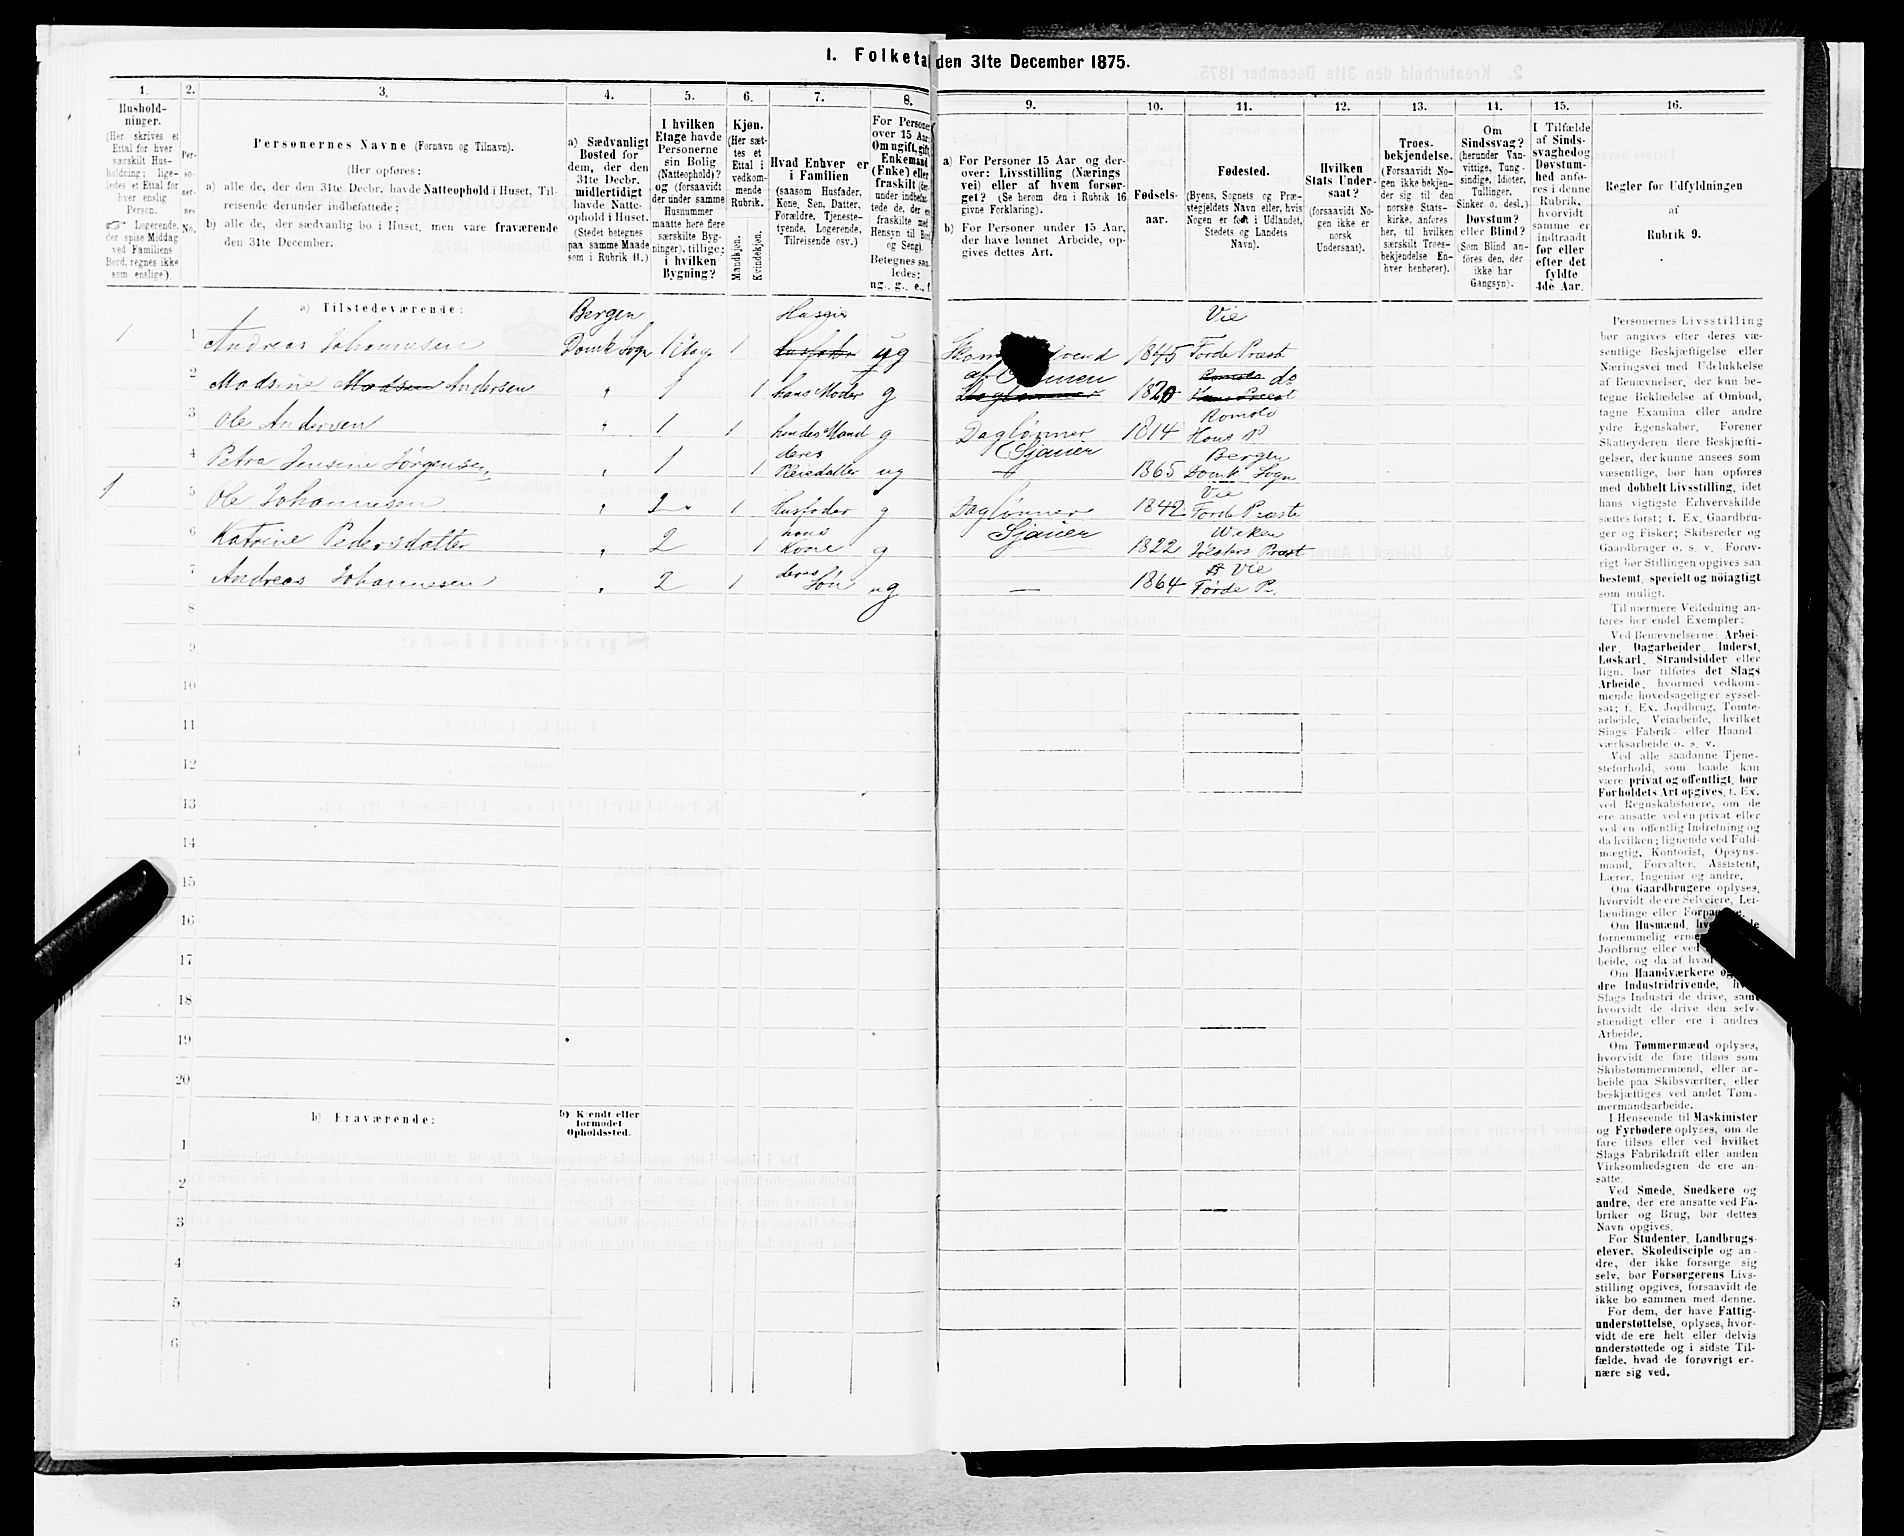 1. Folketal den 31te December 1875.
1.
Hushold-
ninger.
(Her skrives et
Ettal for hver
særskilt Hus-
holdning; lige-
ledes et Ettal for
hver enslig
Person.
Logerende,
der spise Middag
ved Familiens
Bord, regnes ikke
som enslige.)
2.
Per-
so-
ner-
nes
No.
3.
Personernes Navne (Fornavn og Tilnavn).
(Her opføres:
a) alle de, der den 31te Decbr. havde Natteophold i Huset, Til-
reisende derunder indbefattede;
b) alle de, der sædvanlig bo i Huset, men vare fraværende
den 31te December.
4.
a) Sædvanligt
Bosted for
dem, der den
31te Decbr.
midlertidigt
havde Natte-
ophold i Huset.
(Stedet betegnes
paa samme Maade
som i Rubrik 11.)
5.
I hvilken
Etage havde
Personerne
sin Bolig
(Natteophold)?
og (forsaavidt
der under samme
Husnummer
maatte høre flere
særskilte Byg-
ninger), tillige:
i hvilken
Bygning?
6.
Kjøn.
(Her sæt-
tes et
Ettal i
vedkom-
mende
Rubrik.
Mandkjøn.
Kvindekjøn.
7.
Hvad Enhver er
i Familien
(saasom Husfader,
Kone, Søn, Datter,
Forældre, Tjeneste-
tyende, Logerende,
Tilreisende osv.)
8.
For Personer
over 15 Aar:
Om ugift, gift,
Enkemand
(Enke) eller
fraskilt
Betegnes saa-
ledes:
ug., g., e., f.
9.
a) For Personer 15 Aar og der-
over: Livsstilling (Nærings-
vei) eller af hvem forsør-
get? (Se herom den i Rubrik 16
givne Forklaring).
b) For Personer under 15 Aar,
der have lønnet Arbeide, op-
gives dettes Art.
10.
Fødsels-
aar.
11.
Fødested.
(Byens, Sognets og Præ-
stegjeldets Navn eller, hvis
Nogen er født i Udlandet,
Stedets og Landets
Navn).
12.
Hvilken
Stats Under-
saat?
(forsaavidt No-
gen ikke er
norsk
Undersaat).
13.
Troes-
bekjendelse.
(Forsaavidt No-
gen ikke bekjen-
der sig til den
norske Stats-
kirke, anføres
her, til hvilken
særskilt Troes-
bekjendelse En-
hver henhører).
14.
Om
Sindssvag?
(herunder Van-
vittige, Tung-
sindige, Idioter,
Tullinger,
Sinker o. desl.)
Døvstum?
eller Blind?
(Som Blind an-
føres den, der
ikke har
Gangsyn).
15.
I Tilfælde
af Sinds-
svaghed og
Døvstum-
hed anfø-
res i denne
Rubrik,
hvorvidt
samme er
indtraadt
før eller
efter det
fyldte
4de Aar.
16.
Regler for Udfyldningen
af
Rubrik 9.
a) Tilstedeværende:
1 1 Andreas Johannesen Bergen Domk Sogn 1 Etag. 1 ug 1845 Vie Førde Præst
2 Madsine Madsen Andersen " 1 1 hans Moder g Daglønner 1820 do
3 Ole Andersen " 1 1 hendes Mand g Daglønner Sjauer 1814 Romold Hous P
4 Petra Jensine Jørgensen " 1 1 deres Pleiedatter ug — 1865 Bergen Domk Sogn
1 5 Ole Johannesen " 2 " 1 Husfader g Daglønner Sjauer 1842 Vie Førde Præste
6 Katrine Pedersdatter " 2 1 hans Kone g 1822 Jølsters Præst
7 Andreas Johannesen " 2 1 deres Søn ug — 1864 Vie Førde P.
8
9
10
11
12
13
14
15
16
17
18
19
20
b) Fraværende:
b) Kjendt eller
formodet
Opholdssted.
1
2
3
4
5
6
Personernes Livsstilling
bør angives efter deres væ-
sentlige Beskjæftigelse eller
Næringsvei med Udelukkelse
af Benævnelser, der kun be-
tegne Beklædelse af Ombud,
tagne Examina eller andre
ydre Egenskaber. Forener
Skatteyderen flere Beskjæfti-
gelser, der kunne ansees som
væsentlige, bør han opføres
med dobbelt Livsstilling, idet
hans vigtigste Erhvervskilde
sættes først; f. Ex. Gaardbru-
ger og Fisker; Skibsreder og
Gaardbruger o. s. v. Forøv-
rigt bør Stillingen opgives saa
bestemt, specielt og nøiagtigt
som muligt.
Til nærmere Veiledning an-
føres her endel Exempler:
Ved Benævnelserne: Arbei-
der, Dagarbeider, Inderst,
Løskarl, Strandsidder eller
lign. bør tilføies det Slags
Arbeide, hvormed vedkom-
mende hovedsagelig er syssel-
sat; f. Ex. Jordbrug, Tomte-
arbeide, Veiarbeide, hvilket
Slags Fabrik- eller Haand-
værksarbeide o. s. v.
Ved alle saadanne Tjene-
steforhold, som baade kan
være privat og offentligt, bør
Forholdets Art opgives, f. Ex.
ved Regnskabsførere, om de
ere ansatte ved en privat eller
ved en offentlig Indretning og
da hvilken; lignende ved Fuld-
mægtig, Kontorist, Opsyns-
mand, Forvalter, Assistent,
Lærer, Ingeniør og andre.
Om Gaardbrugere oplyses,
hvorvidt de ere Selveiere, Lei-
lendinge eller
Om Husmænd,
fornemmelig
Jordbrug eller ved
beide, og da af hvad
Om Haandværkere
dre Industridrivende,
Slags Industri de drive, samt
hvorvidt de drive den selv-
stændigt eller ere i andres
Arbeide.
Om Tømmermænd oplyses,
hvorvidt de fare tilsøs som
Skibstømmermænd, eller ar-
beide paa Skibsværfter, eller
beskjæftiges ved andet Tøm-
mermandsarbeide.
I Henseende til Maskinister
og Fyrbødere oplyses, om de
fare tilsøs eller ved hvilket
Slags Fabrikdrift eller anden
Virksomhedsgren de ere an-
satte.
Ved Smede, Snedkere og
andre, der ere ansatte ved Fa-
briker og Brug, bør dettes
Navn opgives.
For Studenter, Landbrugs-
elever, Skoledisciple og an-
dre, der ikke forsørge sig
selv, bør Forsørgerens Livs-
stilling opgives, forsaavidt de
ikke bo sammen med denne.
For dem, der have Fattig-
understøttelse, oplyses, hvor-
vidt de ere helt eller delvis
understøttede og i sidste Til-
fælde, hvad de forøvrigt er-
nære sig ved.